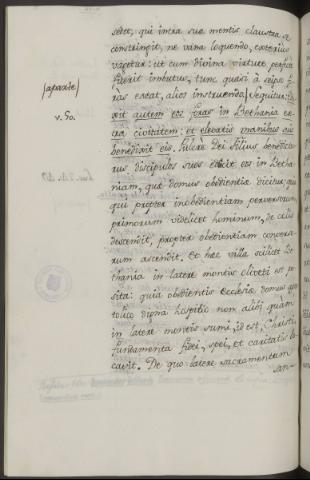 sedet, qui intra suæ mentis claustra se
constringit, ne vana loquendo, exterius
vagetur: ut cum divina virtute perfecte
fuerit imbutus, tunc quasi à seipso fo-
ràs exeat, alios instruendo. Sequitur: Du-
xit autem eos foras in Bethania ex-
tra civitatem: et elevatis manibus suis
benedixit eis. Filius benedic-
turus discipulos suos eduxit eos in Betha-
niam, quæ domus obedientiæ dicitur; quia
qui propter inobedientiam perversorum,
primorum videlicet hominum, de cælis
descendit, propter obedientiam converso-
rum ascendit. Et hæc villa scilicet Be-
thania in latere montis oliveti est po-
sita: quia obedientis Ecclesiæ domus
digna hospitio non alibi quam
in latere montis sumi, id est, Christi
fundamenta fidei, spei, et caritatis lo-
cavit. De quo latere sacramentum
san-
(aparte)
v. 50.